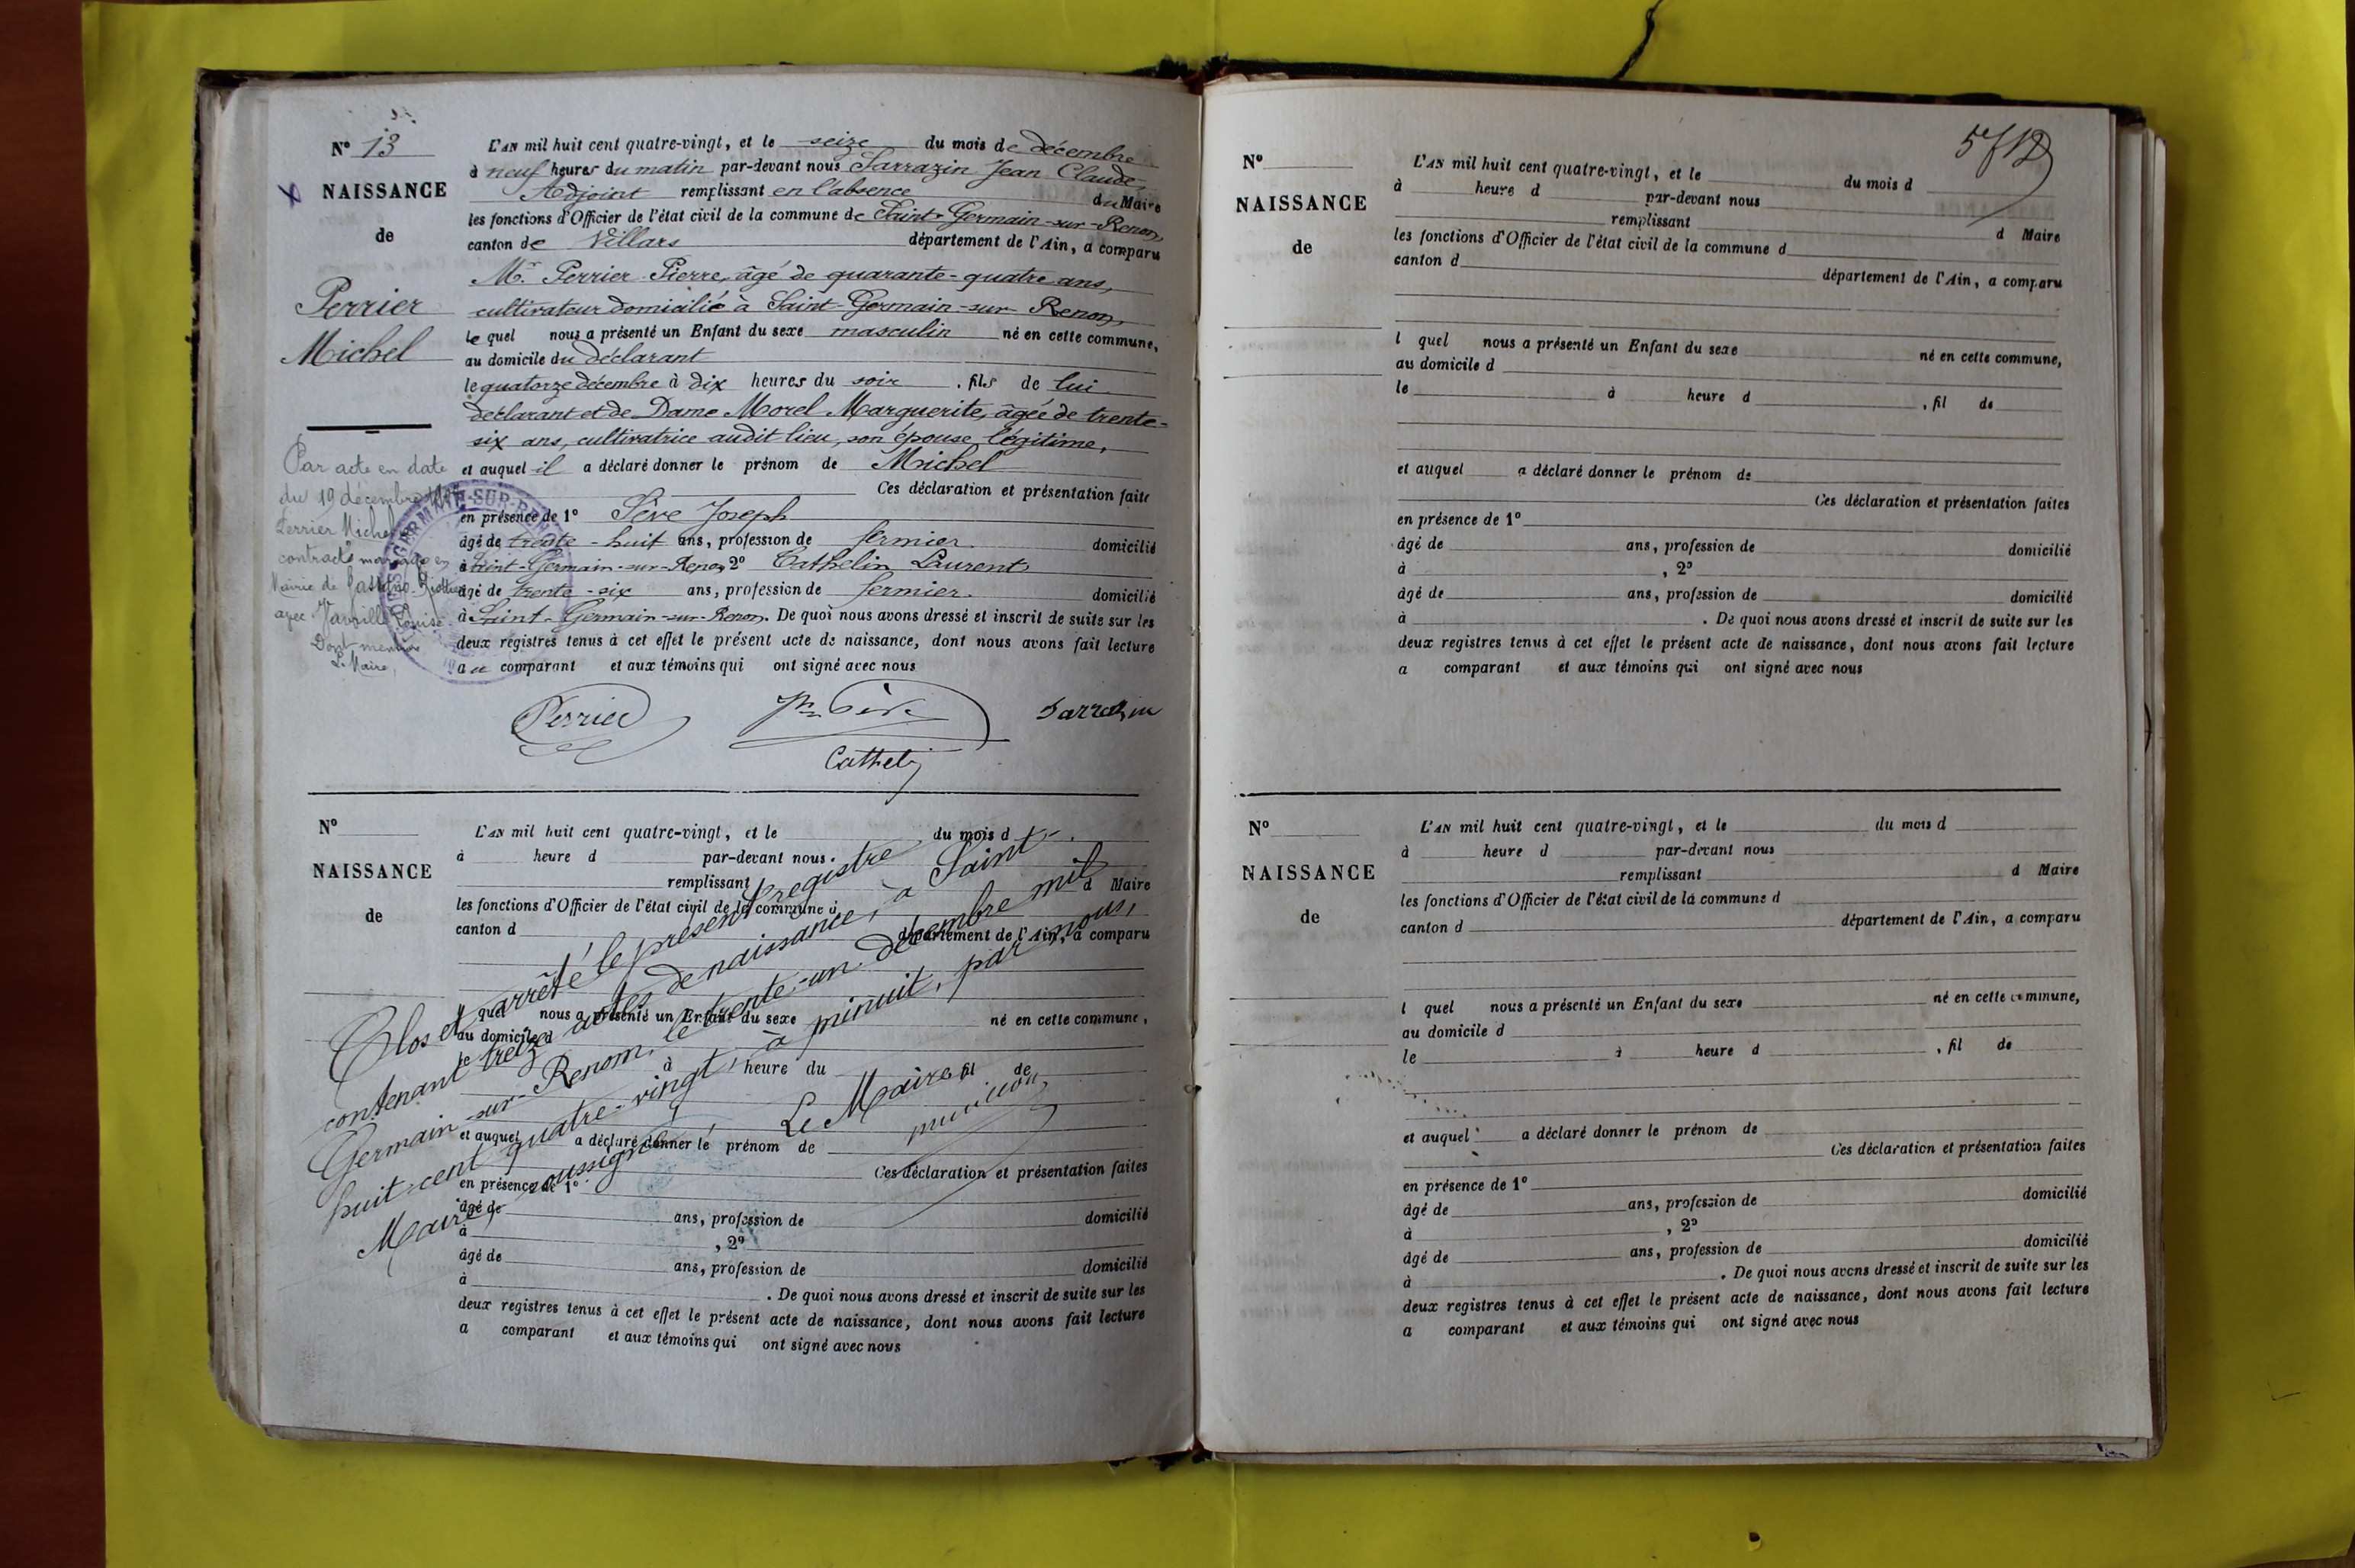 N° 13
NAISSANCE
de
Perrier
Michel
L'AN mil huit cent quatre-vingt, et le seize du mois de décembre
à neuf heures du matin par-devant nous Sarrazin Jean Claude,
Adjoint remplissant en l'absence du Maire
les fonctions d'Officier de l'état civil de la commune de Saint-Germain-sur-Renon,
canton de Villars département de l'Ain, a comparu
Mr. Perrier Pierre, âgé de quarante-quatre ans,
cultivateur domicilié à Saint-Germain-sur-Renon,
le quel nous a présenté un Enfant du sexe masculin né en cette commune,
au domicile du déclarant
le quatorze décembre à dix heures du soir, fils de lui
déclarant et de Dame Morel Marguerite, âgée de trente-
six ans, cultivatrice audit lieu, son épouse légitime,
et auquel il a déclaré donner le prénom de Michel
Ces déclaration et présentation faite
en présence de 1° Sève Joseph
âgé de trente-huit ans, profession de fermier domicilié
à Saint-Germain-sur-Renon, 2° Cathelin Laurent
âgé de trente-six ans, profession de fermier domicilié
à Saint-Germain-sur-Renon. De quoi nous avons dressé et inscrit de suite sur les
deux registres tenus à cet effet le présent acte de naissance, dont nous avons fait lecture
au comparant et aux témoins qui ont signé avec nous
Par acte en date
du 19 décembre
Perrier Michel
contracté mariage en
Mairie de
avec Louise
Dont mention
Le Maire,
Perrier Sève Sarrazin
Cathelin
N°
NAISSANCE
de
L'AN mil huit cent quatre-vingt, et le du mois d
à heure d par-devant nous
remplissant d Maire
les fonctions d'Officier de l'état civil de la commune d
canton d département de l'Ain, a comparu
l quel nous a présenté un Enfant du sexe né en cette commune,
au domicile d
le à heure du fil de
et auquel a déclaré donner le prénom de
Ces déclaration et présentation faites
en présence de 1°
âgé de ans, profession de domicilié
à , 2°
âgé de ans, profession de domicilié
à . De quoi nous avons dressé et inscrit de suite sur les
deux registres tenus à cet effet le présent acte de naissance, dont nous avons fait lecture
a comparant et aux témoins qui ont signé avec nous
Clos et arrêté le présent registre
contenant treize actes de naissance, à Saint-
Germain-sur-Renom, le trente-un décembre mil
huit-cent quatre-vingt, à minuit, par nous,
Maire, soussigné
Le Maire
5/12
N°
NAISSANCE
de
L'AN mil huit cent quatre-vingt, et le du mois d
à heure d par-devant nous
remplissant d Maire
les fonctions d'Officier de l'état civil de la commune d
canton d département de l'Ain, a comparu
l quel nous a présenté un Enfant du sexe né en cette commune,
au domicile d
le à heure d , fil de
et auquel a déclaré donner le prénom de
Ces déclaration et présentation faites
en présence de 1°
âgé de ans, profession de domicilié
à , 2°
âgé de ans, profession de domicilié
à . De quoi nous avons dressé et inscrit de suite sur les
deux registres tenus à cet effet le présent acte de naissance, dont nous avons fait lecture
a comparant et aux témoins qui ont signé avec nous
N°
NAISSANCE
de
L'AN mil huit cent quatre-vingt, et le du mois d
à heure d par-devant nous
remplissant d Maire
les fonctions d'Officier de l'état civil de la commune d
canton d département de l'Ain, a comparu
l quel nous a présenté un Enfant du sexe né en cette commune,
au domicile d
le à heure d , fil de
et auquel a déclaré donner le prénom de
Ces déclaration et présentation faites
en présence de 1°
âgé de ans, profession de domicilié
à , 2°
âgé de ans, profession de domicilié
à . De quoi nous avons dressé et inscrit de suite sur les
deux registres tenus à cet effet le présent acte de naissance, dont nous avons fait lecture
a comparant et aux témoins qui ont signé avec nous